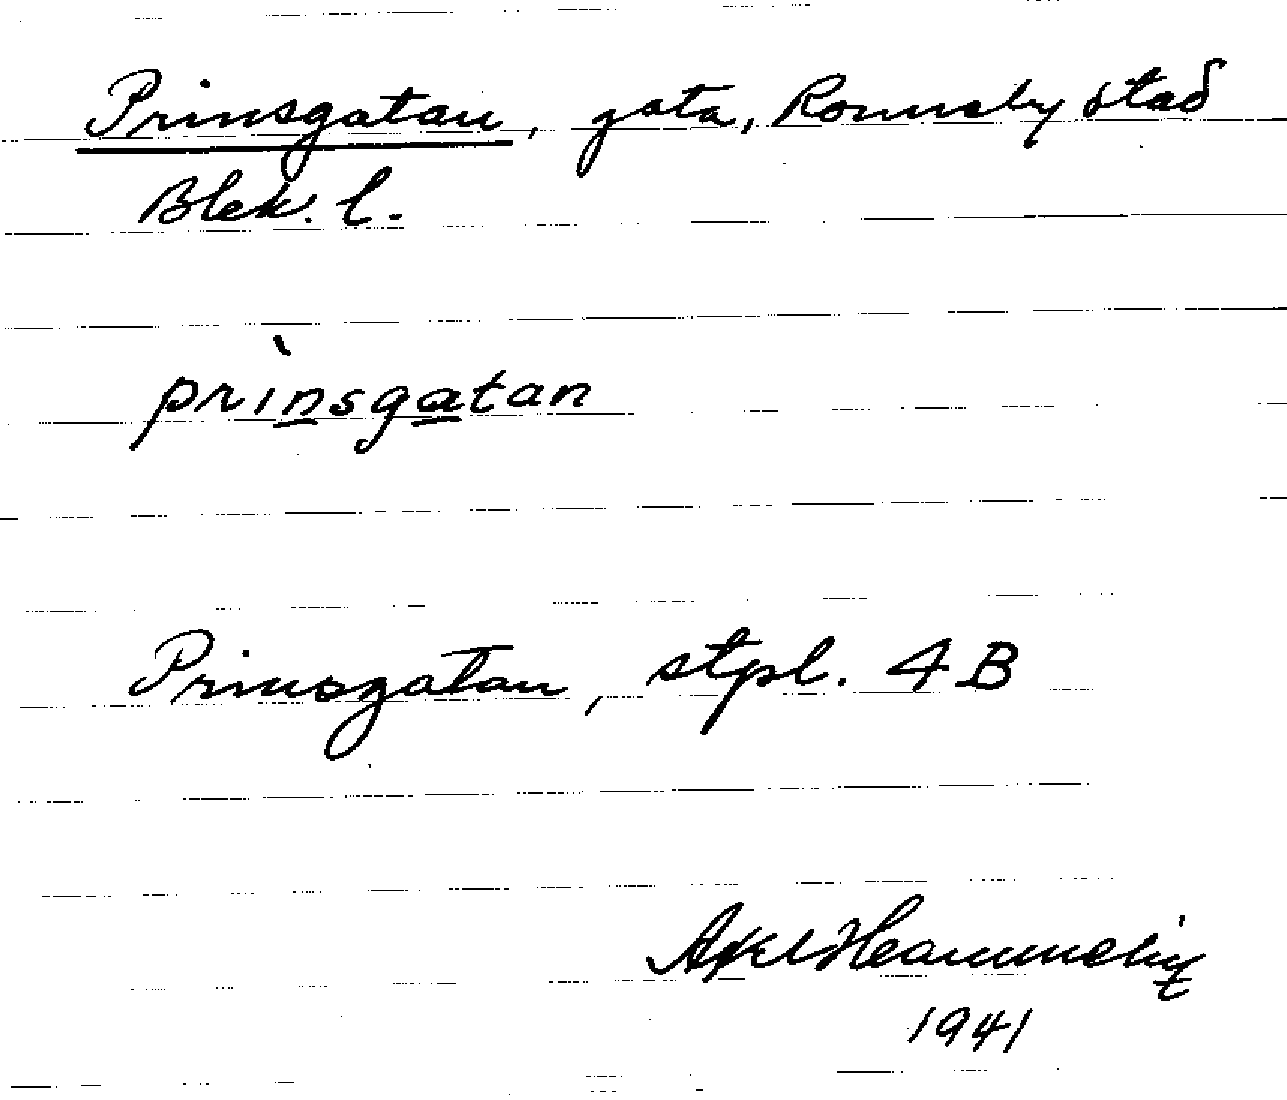 Prinsgatan, gata, Ronneby stad
Blek. l.
prìnsgatan
Prinsgatan, stpl. 4 B
1941